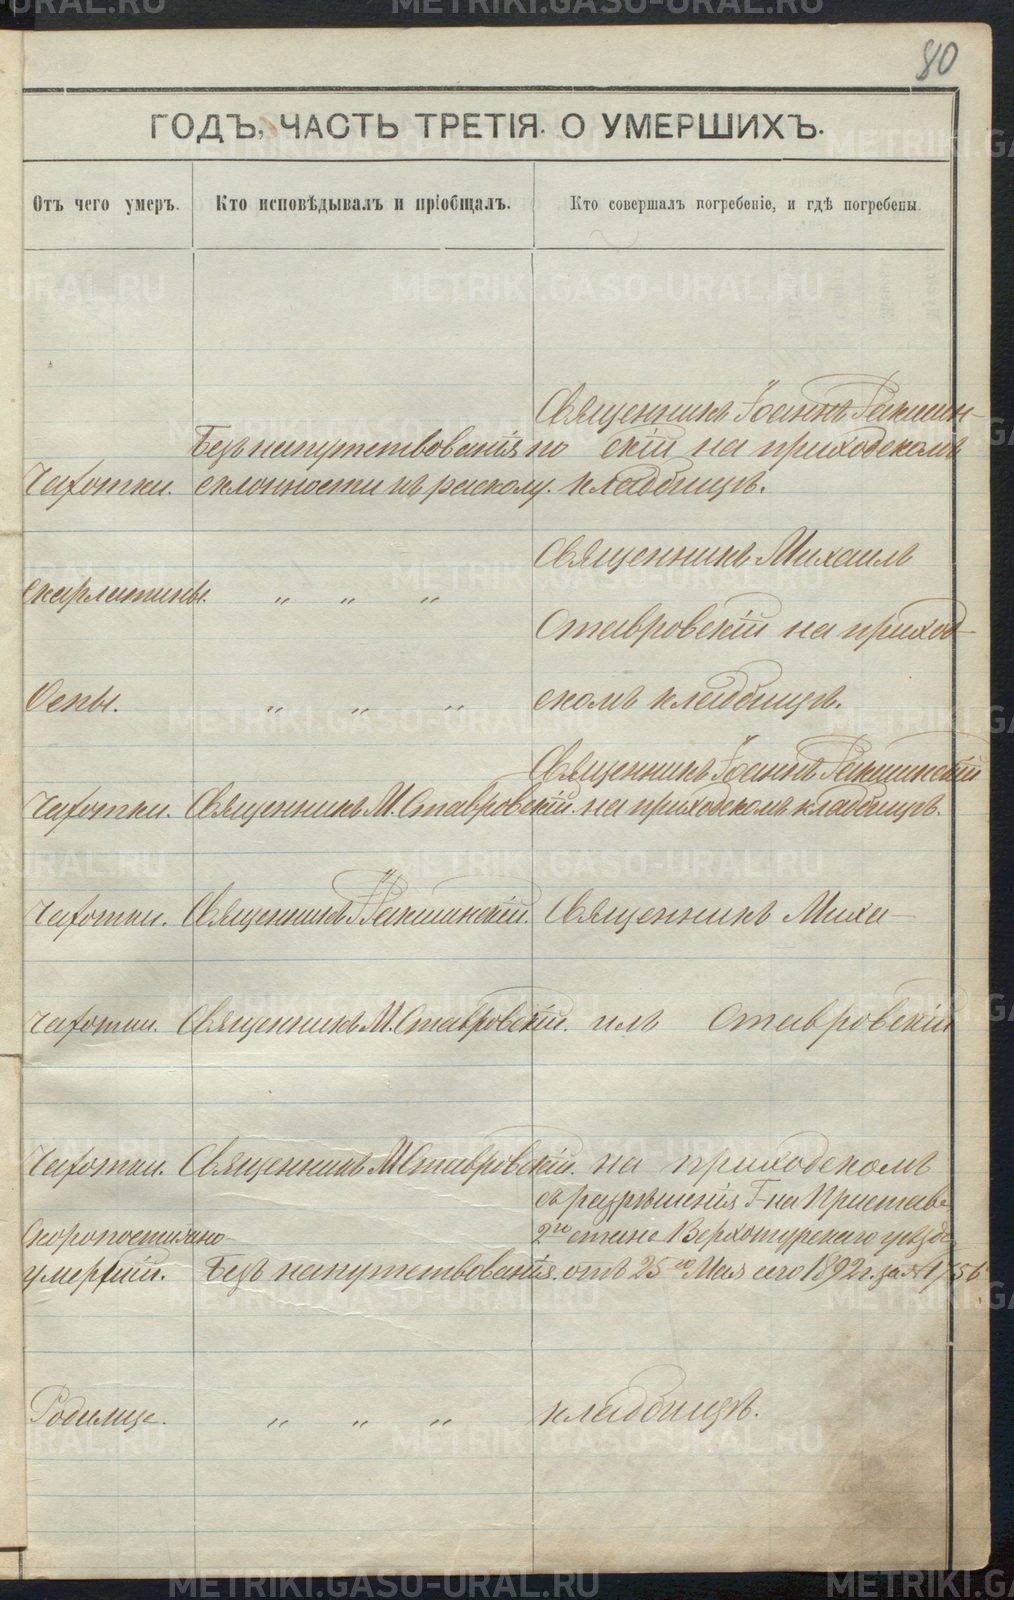 80
ГОДЪ, ЧАСТЬ ТРЕТІЯ. О УМЕРШИХЪ.
Отъ чего умеръ. Кто исповѣдывалъ и пріобщалъ. Кто совершалъ погребеніе, и гдѣ погребены.
Священникъ Іоаннъ Ракшин-
Безъ напутствованія по скій на приходскомъ
Чахотки. склонности къ расколу. кладбищѣ.
Священникъ Михаилъ
Скарлатины. „ „ „
Ставровскій на приход-
Оспы. „ „ „ скомъ кладбищѣ.
Священникъ Іоаннъ Ракшинскій
Чахотки. Священникъ М. Ставровскій. на приходскомъ кладбищѣ.
Чахотки. Священникъ І Ракшинскій. Священникъ Миха-
Чахотки. Священникъ М. Ставровскій. илъ Ставровскій
Чахотки. Священникъ М Ставровскій. на приходскомъ
съ разрѣшенія Г-на Пристава
Скоропостижно 2го стана Верхотурскаго уѣзда
умершій. Безъ напутствованія. отъ 25го Мая сего 1892 г. за № 1756.
Родимца. „ „ „ кладбищѣ.
METRIKI.GASO-URAL.RU